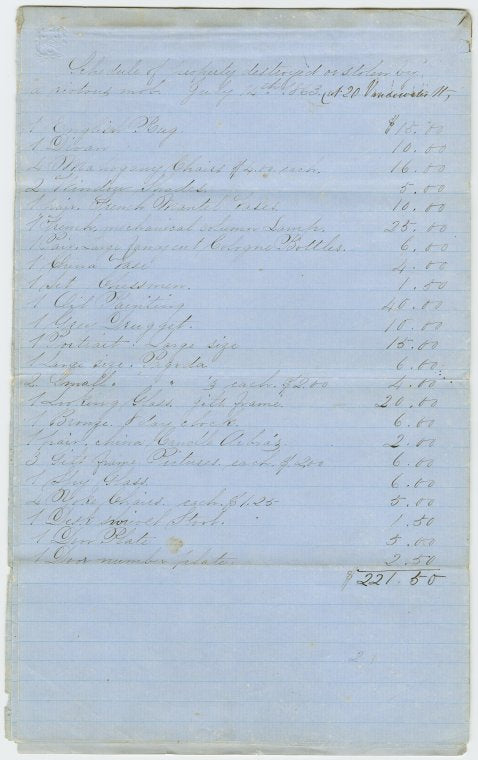 Schedule of property destroyed or stolen by
a riotous mob July 1863 (at 20 Vandewater St,
1 English Rug $18.00
1 Divan 10.00
4 Mahogany Chairs $4.00 each. 16.00
2 Window Shades. 5.00
1 pair French Mantel Vases 10.00
1 French mechanical column Lamp. 25.00
1 Pair Large fancy cut Cologne Bottles. 6.00
1 China Vase 4.00
1 Set Chessmen. 1.50
1 Oil Painting 40.00
1 Drugget. 10.00
1 Portrait. Large size 15.00
1 Large size 6.00
2 Small " " each $2.00 4.00
1 Looking Glass gilt frame. 20.00
1 Bronze 8 day clock. 6.00
1 pair china 2.00
3 Gilt frame Pictures each $2.00 6.00
1 Glass 6.00
4 Chairs each $1.25 5.00
1 Desk swivel Stool. 1.50
1 Door Plate 5.00
1 Door number plate. 2.50
$ 221.50